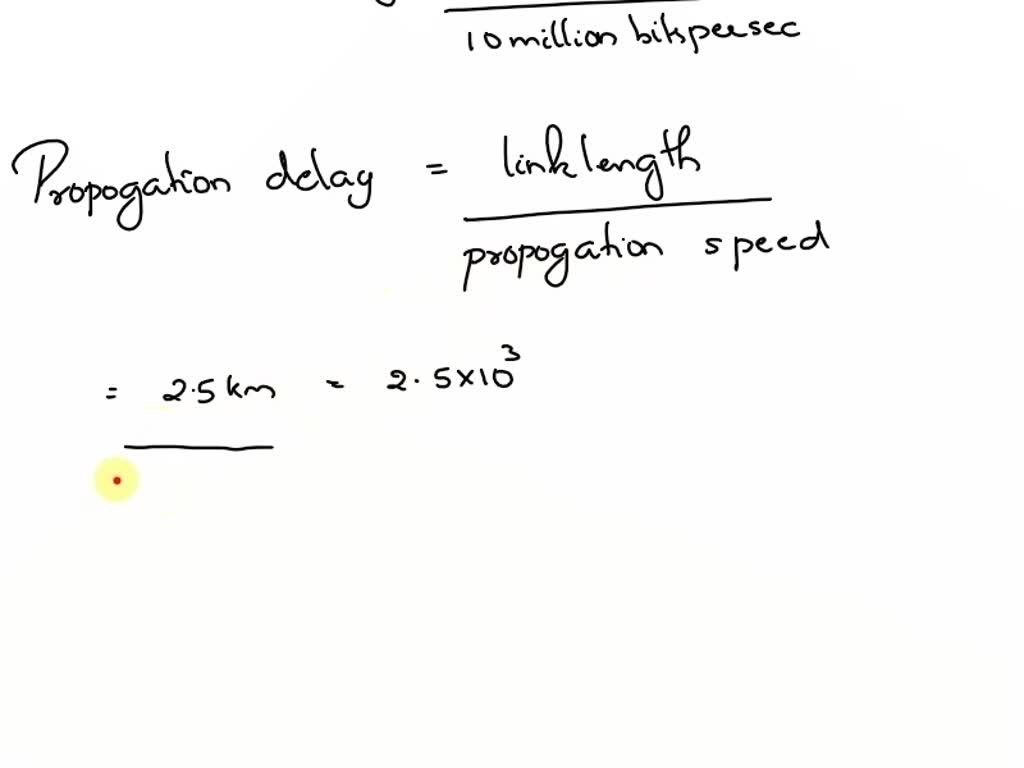 10 million bitspersec
Propogation delay = link length
propogation speed
= 2.5 km = 2.5×10³